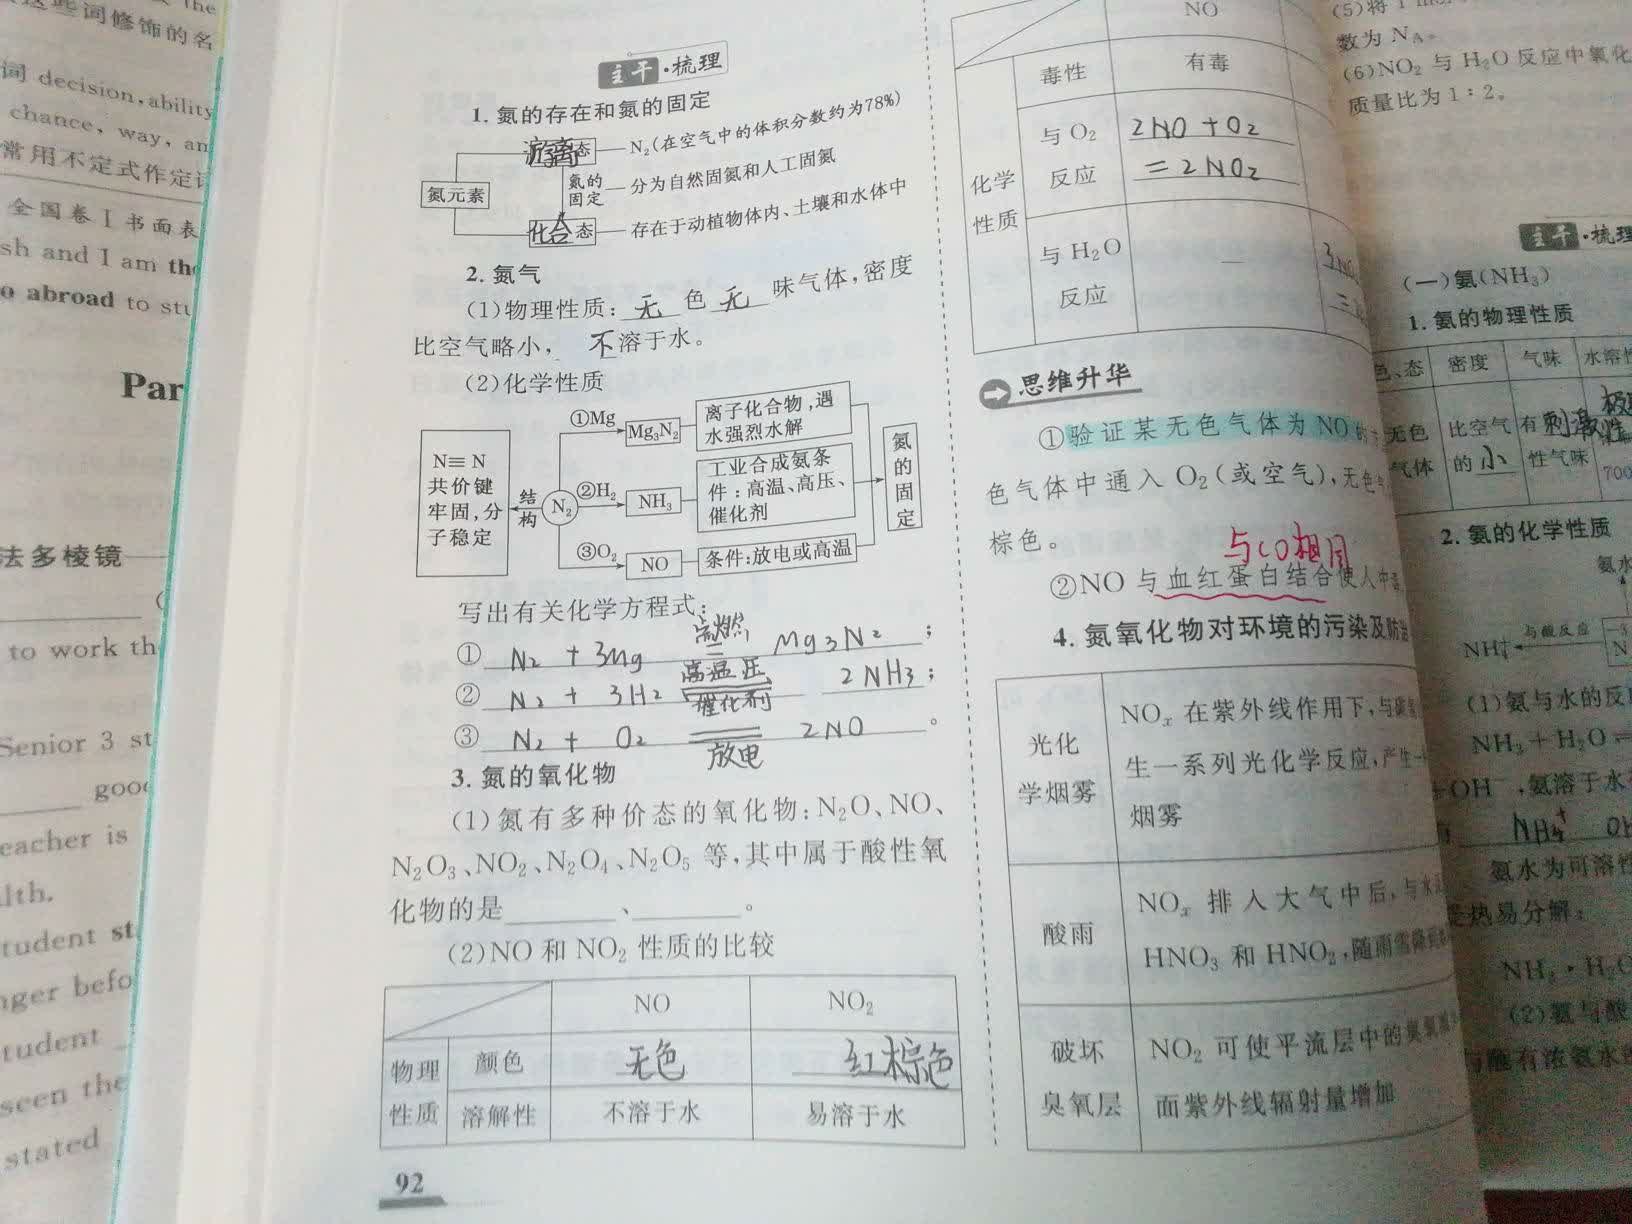 这些词修饰的名
词 decision, ability
chance, way, an
常用不定式作定语
全国卷Ⅰ书面表
sh and I am the
o abroad to stu
Par
法多棱镜
to work th
Senior 3 st
good
eacher is
lth.
tudent st
nger befo
tudent
seen the
stated
主干·梳理
1. 氮的存在和氮的固定
氮元素
游离态 — N₂(在空气中的体积分数约为78%)
氮的固定 — 分为自然固氮和人工固氮
化合态 — 存在于动植物体内、土壤和水体中
2. 氮气
(1)物理性质: 无 色 无 味气体,密度
比空气略小, 不溶于水。
(2)化学性质
N≡N
共价键
牢固,分
子稳定
结构
N₂
①Mg
Mg₃N₂
离子化合物,遇
水强烈水解
②H₂
NH₃
工业合成氨条
件:高温、高压、
催化剂
③O₂
NO
条件:放电或高温
氮的固定
写出有关化学方程式:
① N₂ + 3Mg 点燃 = Mg₃N₂ ;
② N₂ + 3H₂ 高温 压 催化剂 2NH₃ ;
③ N₂ + O₂ 放电 2NO 。
3. 氮的氧化物
(1)氮有多种价态的氧化物:N₂O、NO、
N₂O₃、NO₂、N₂O₄、N₂O₅ 等,其中属于酸性氧
化物的是________、________。
(2)NO 和 NO₂ 性质的比较
NO NO₂
物理性质
颜色 无色 红棕色
溶解性 不溶于水 易溶于水
92
NO
化学性质
毒性 有毒
与 O₂ 反应
2NO + O₂
= 2NO₂
与 H₂O 反应 —
思维升华
①验证某无色气体为 NO
色气体中通入 O₂(或空气),无色
棕色。
与CO相同
②NO 与血红蛋白结合使人中
4. 氮氧化物对环境的污染及防治
光化学烟雾
NOₓ 在紫外线作用下,与
生一系列光化学反应,产生
烟雾
酸雨
NOₓ 排入大气中后,与水
HNO₃ 和 HNO₂,随雨雪
破坏臭氧层
NO₂ 可使平流层中的臭氧
面紫外线辐射量增加
(5)将 1
数为 N_A。
(6)NO₂ 与 H₂O 反应中氧化
质量比为 1∶2。
主干·梳理
(一)氨(NH₃)
1. 氨的物理性质
色、态 密度 气味 水溶性
无色气体 比空气的小 有刺激性气味 700
2. 氨的化学性质
氨水
NH₄⁺
与酸反应
(1)氨与水的反应
NH₃+H₂O
+OH⁻,氨溶于水
NH₄⁺ OH
氨水为可溶性
热易分解:
NH₃·H₂O
(2)氨与酸